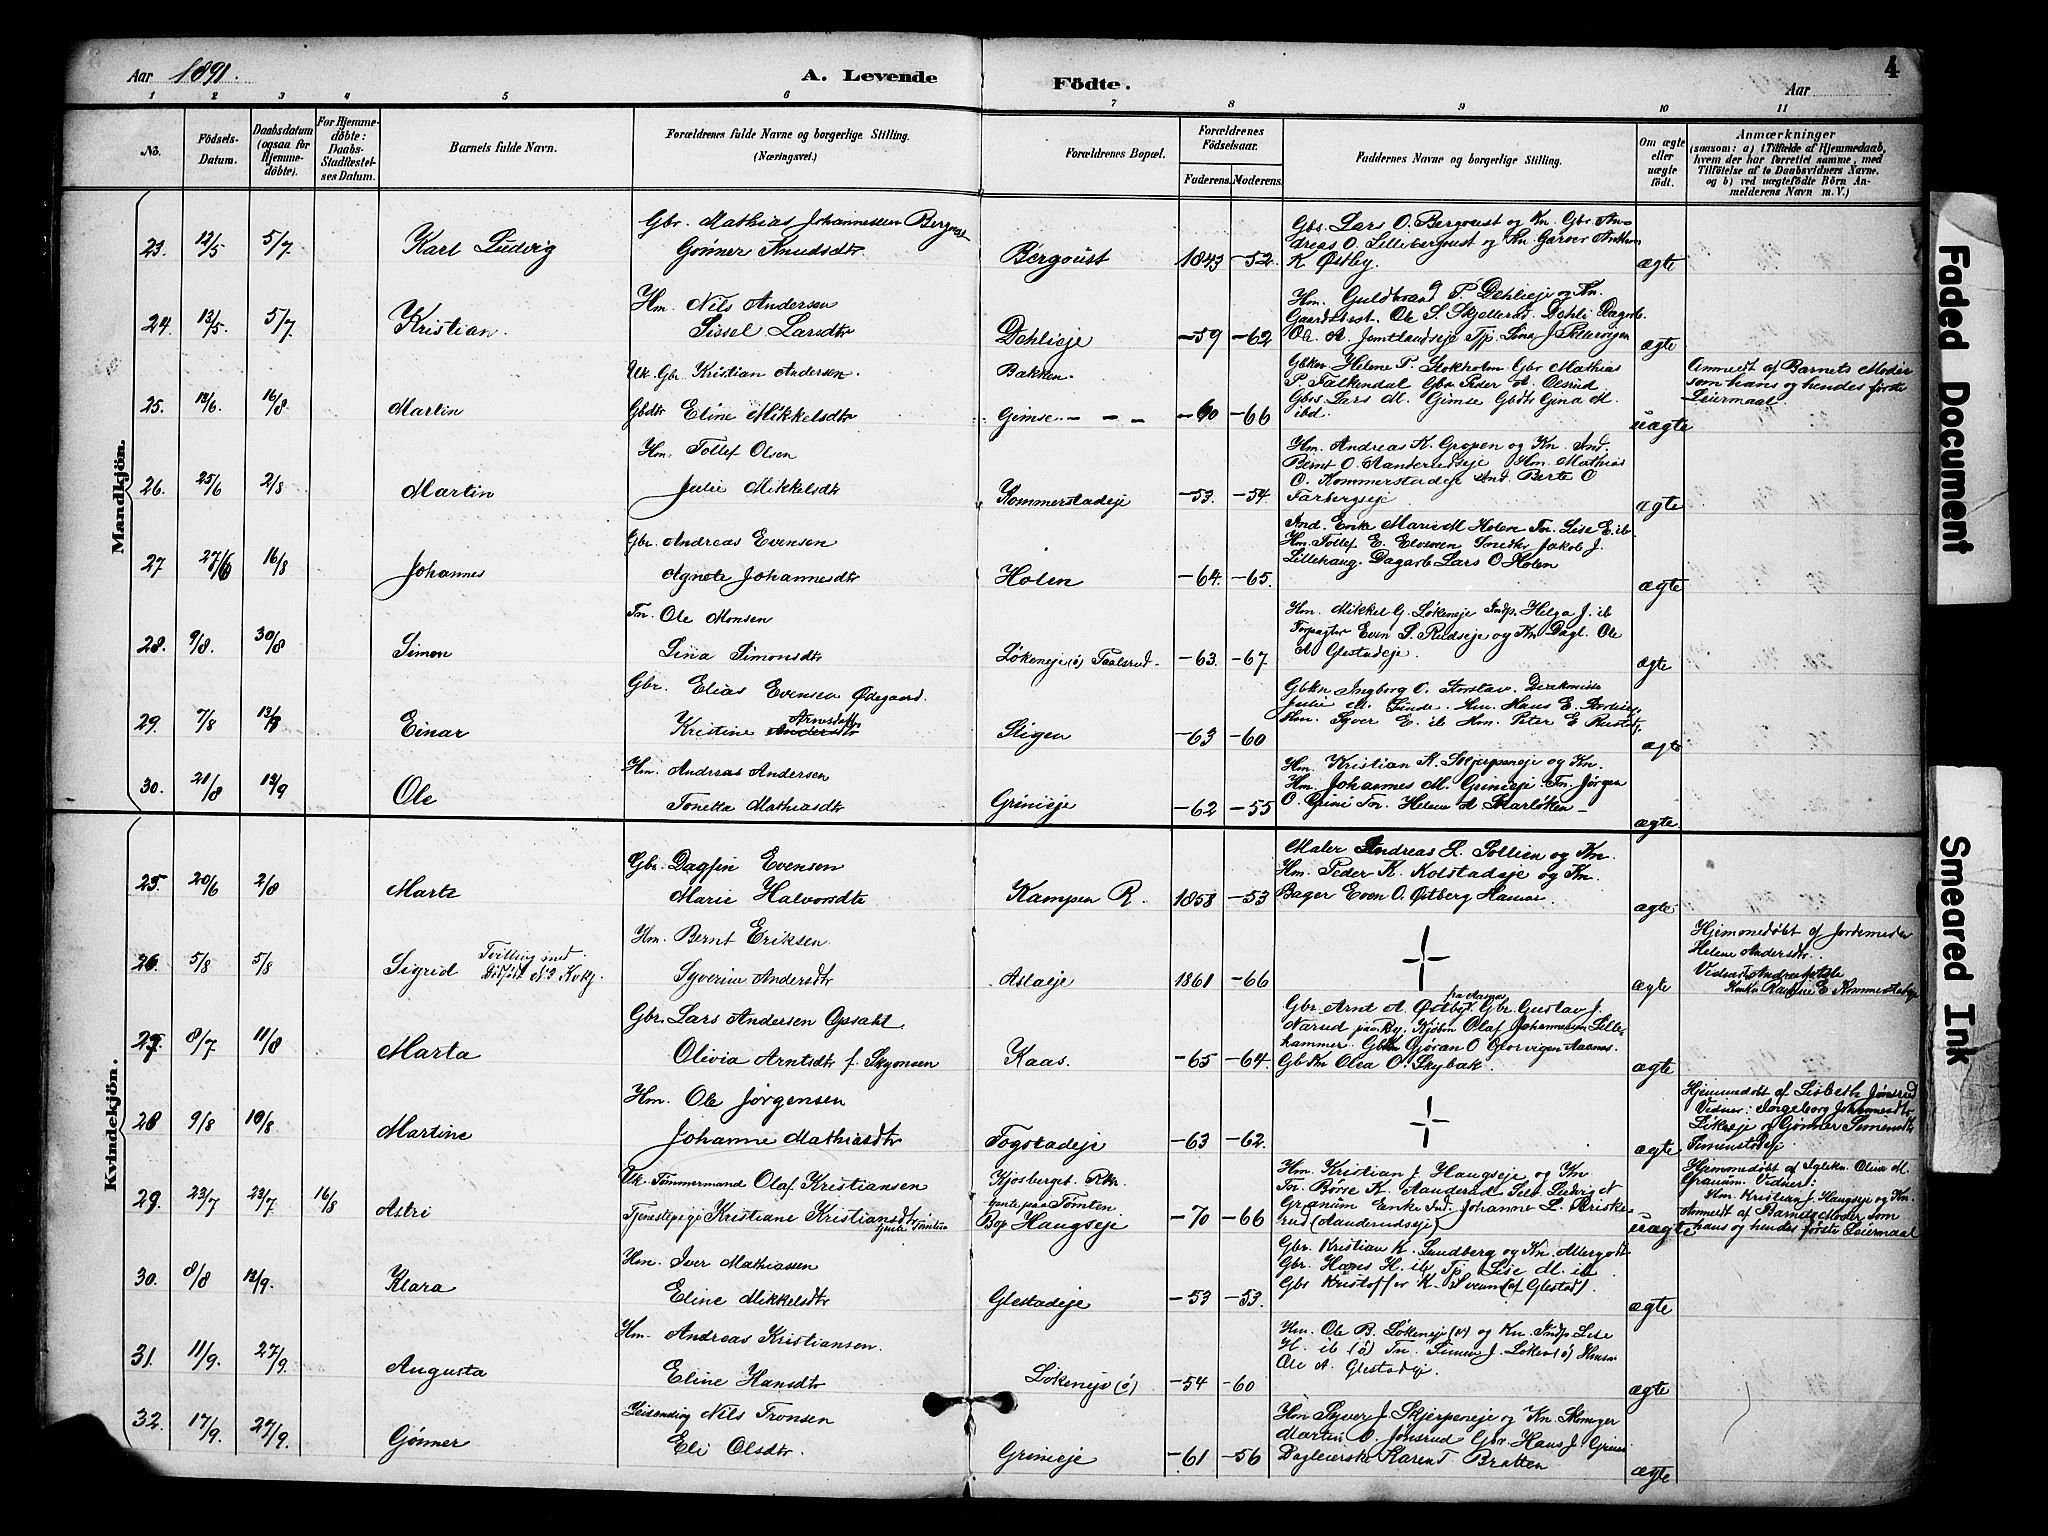 Aar 1891.
A. Levende
Födte.
Aar
4
1 2 3 4 5 6 7 8 9 10 11
No.
Födsels-
Datum.
Daabsdatum
(ogsaa for
Hjemme-
döbte).
For Hjemme-
döbte:
Daabs-
Stadfæstel-
ses Datum.
Barnets fulde Navn.
Forældrenes fulde Navne og borgerlige Stilling.
(Næringsvei.)
Forældrenes Bopæl.
Forældrenes
Födselsaar.
Faderens.
Moderens.
Faddernes Navne og borgerlige Stilling.
Om ægte
eller
uægte
födt.
Anmærkninger
(saasom: a) i Tilfælde af Hjemmedaab,
hvem der har forrettet samme, med
Tilföielse af to Daabsvidners Navne.
og b) ved uægtefödte Börn An-
melderens Navn m. V.)
Mandkjön.
23. 12/5 5/7 Karl Ludvig
Gbr. Mathias Johannessen Bergoust
Gønner Knudsdtr
Bergoust 1843 -52.
Gbs. Lars O. Bergoust og Kn. Gbr. An-
dreas O. Lillebergoust og Kn Garver Anthon
K Østby.
ægte
24. 13/5. 5/7 Kristian.
Hm. Nils Andersen
Sissel Larsdtr
Dehlieje -59 -62
Hm. Guldbrand P. Dehlieje og Kn.
Ole S. Skjellerud Dehli Dagarb.
Ole A. Jemtlandseje Tp. Lina J.
ægte
25. 12/6. 16/8 Martin
Uk. Gbr. Kristian Andersen.
Gbdtr Eline Mikkelsdtr
Bakken.
Gimse - - - -60 -66
Gbkn Helene T. Stokholm Gbr Mathias
P. Falkendal Gbr Peder M. Olsrud
Gbs Lars M. Gimse Gbdtr Gina M
ibd.
uægte
Anmeldt af Barnets Moder
som hans og hendes første
Leiermaal.
26. 25/6 2/8 Martin
Hm. Tollef Olsen
Julie Mikkelsdtr
Kommerstadeje -53. -54.
Hm. Andreas K. Gropen og Kn Ind.
Bernt O. Aanderudseje Hm. Mathias
O. Kommerstadeje Ind Berte O
Farbergseje
ægte
27 27/6 16/8 Johannes
Gbr. Andreas Evensen
Agnete Johannesdtr
Holen -64. -65.
Ind. Enke Mari M Holen Tn. Lise E. ib
Hm. Tollef E. Elveren Jakob J.
Lillehaug. Dagarb Lars O Holen
ægte
28. 9/8. 30/8 Simon
Tn. Ole Monsen
Lina Simonsdtr
Løkeneje (ø) Taalsrud- -63. -67.
Hm. Mikkel G. Løkeneje Indp. Helga J. ib
Forpagter Even S. Rudseje og Kn Dagl. Ole
A Glestadeje.
ægte
29. 7/8 13/9 Einar
Gbr. Elias Evensen Ødegaard.
Kristine Arnesdtr
Stigen -63 -60
Gbkn Ingborg O. Storstav.
Julie M. Linde. Hans E.
Hm. Syver E. ib Hm. Peter E Rustad
ægte
30. 21/8 13/9 Ole
Hm. Andreas Andersen
Tonetta Mathiasdtr
Grinieje -62 -55
Hm. Kristian K. Skjerpeneje og Kn.
Hm. Johannes M. Grinieje Tn. Jørgen
O. Grini Tn. Helene A Starløken-
ægte
Kvindekjön.
25. 20/6 2/8 Marta
Gbr. Dagfin Evensen
Marie Halvorsdtr
Kampen R. 1858 -53
Maler Andreas L. Sollien og Kn.
Hm. Peder K. Kolstadeje og Kn
Bager Even O. Østberg Hamar
ægte
26. 5/8 5/8 Sigrid Tvilling med
Dødfødt N 3 Kvkj.
Hm. Bernt Eriksen
Syverine Andersdtr
Aslaeje 1861 -66
ægte
Hjemmedøbt af Jordemoder
Helene Andersdtr.
27. 8/7 11/8 Marta
Gbr. Lars Andersen Opsaht
Olivia Arntsdtr f. Skyonsen
Kaas. -65 -64.
Gbr. Arnt A. Østby Gbr. Gustav J.
Narud paa Ry. Kjøbm Olaf Johannesen Lille-
hammer. Gbkn Gjøran O Aasnes.
Gbkn Olea O. Skybak.
ægte
28 9/8 10/8 Martine
Hm. Ole Jørgensen
Johanne Mathiasdtr
Fogstadeje -63 -62.
ægte
Hjemmedøbt af Lisbeth Jønsrud
Vidner: Ingeborg Johannesdtr.
Løkneje og Gønner Simensdtr
Simenstadeje
29. 23/7 23/7 16/8 Astri
Uk. Tømmermand Olaf Kristiansen
Tjenestepige Kristiane Kristiansdtr
Kjosberget. Rhr.
paa Tomten
Bop Haugseje -70 -66
Hm. Kristian J Haugseje og Kn.
Tn. Børre K. Aanderud Selv. Ludvig N
Granum Enke Ind. Johanne L. Briske-
rud (Aanderudseje)
uægte
Hjemmedøbt af Olina M.
Granum. Vidner:
Hm. Kristian J. Haugseje og Kn.
Anmeldt af Barnets Moder, som
hans og hendes første Leiermaal
30. 8/8 13/9. Klara
Hm. Iver Mathiassen
Eline Mikkelsdtr
Glestadeje -53 -53.
Gbr. Kristian K. Sundberg og Kn.
Gbr. Hans H. ib Tp. Lise M. ib
Gbs Kristoffer K. Sveum (af Glestad).
ægte
31. 11/9. 27/9. Augusta
Hm. Andreas Kristiansen.
Eline Hansdtr
Løkeneje (ø) -54 -60
Hm. Ole B. Løkeneje (ø) og Kn. Indp Lise
H. ib (ø) Tn. Simen J. Løken (ø)
Ole A. Glestadeje.
ægte
32. 17/9. 27/9. Gønner
Nils Tronsen
Eli Olsdtr.
Grinieje -61 -56
Hm Syver J. Skjerpeneje og Kn.
Martin O. Jønsrud Gbr. Hans J. Grini
Dagleierske Karen T Bratten
ægte
Faded Document
Smeared Ink